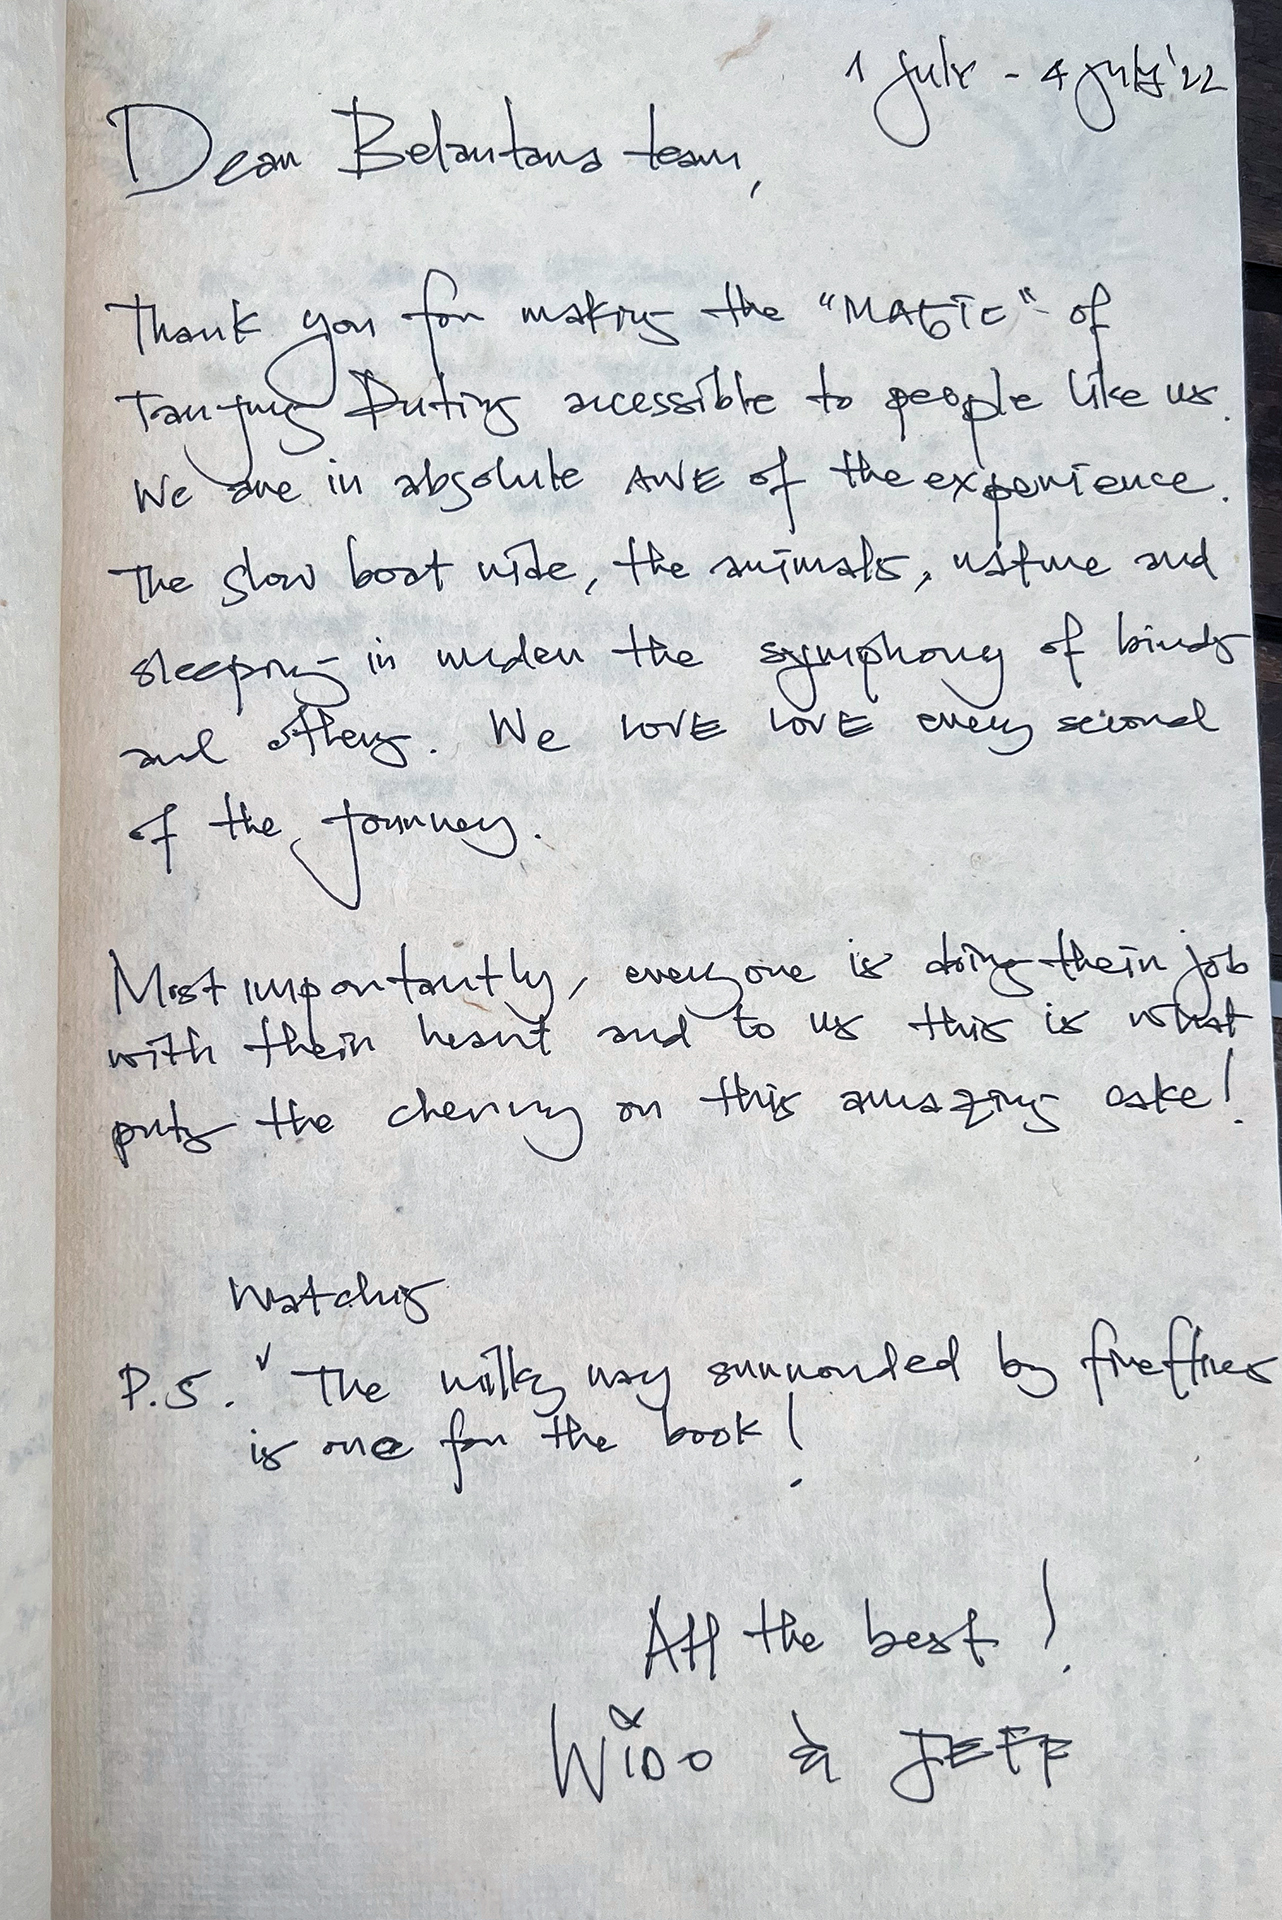 1 July - 4 July '22
Dear Belantara team,
Thank you for making the "MAGIC" of
Tanjung Puting accessible to people like us.
We are in absolute AWE of the experience.
The slow boat ride, the animals, nature and
sleeping in under the symphony of birds
and others. We LOVE LOVE every second
of the journey.
Most importantly, everyone is doing their job
with their heart and to us this is what
puts the cherry on this amazing cake!
Watching
P.S. ˅ The milky way surrounded by fireflies
is one for the book!
All the best!
WIDO & JEFF